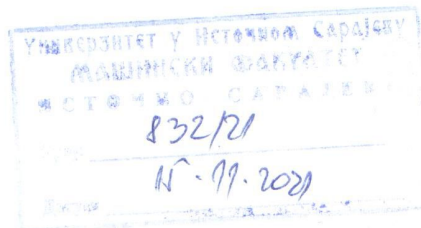 Универзитет у Источном Сарајеву
МАШИНСКИ ФАКУЛТЕТ
ИСТОЧНО САРАЈЕВО
832/21
15.11.2021